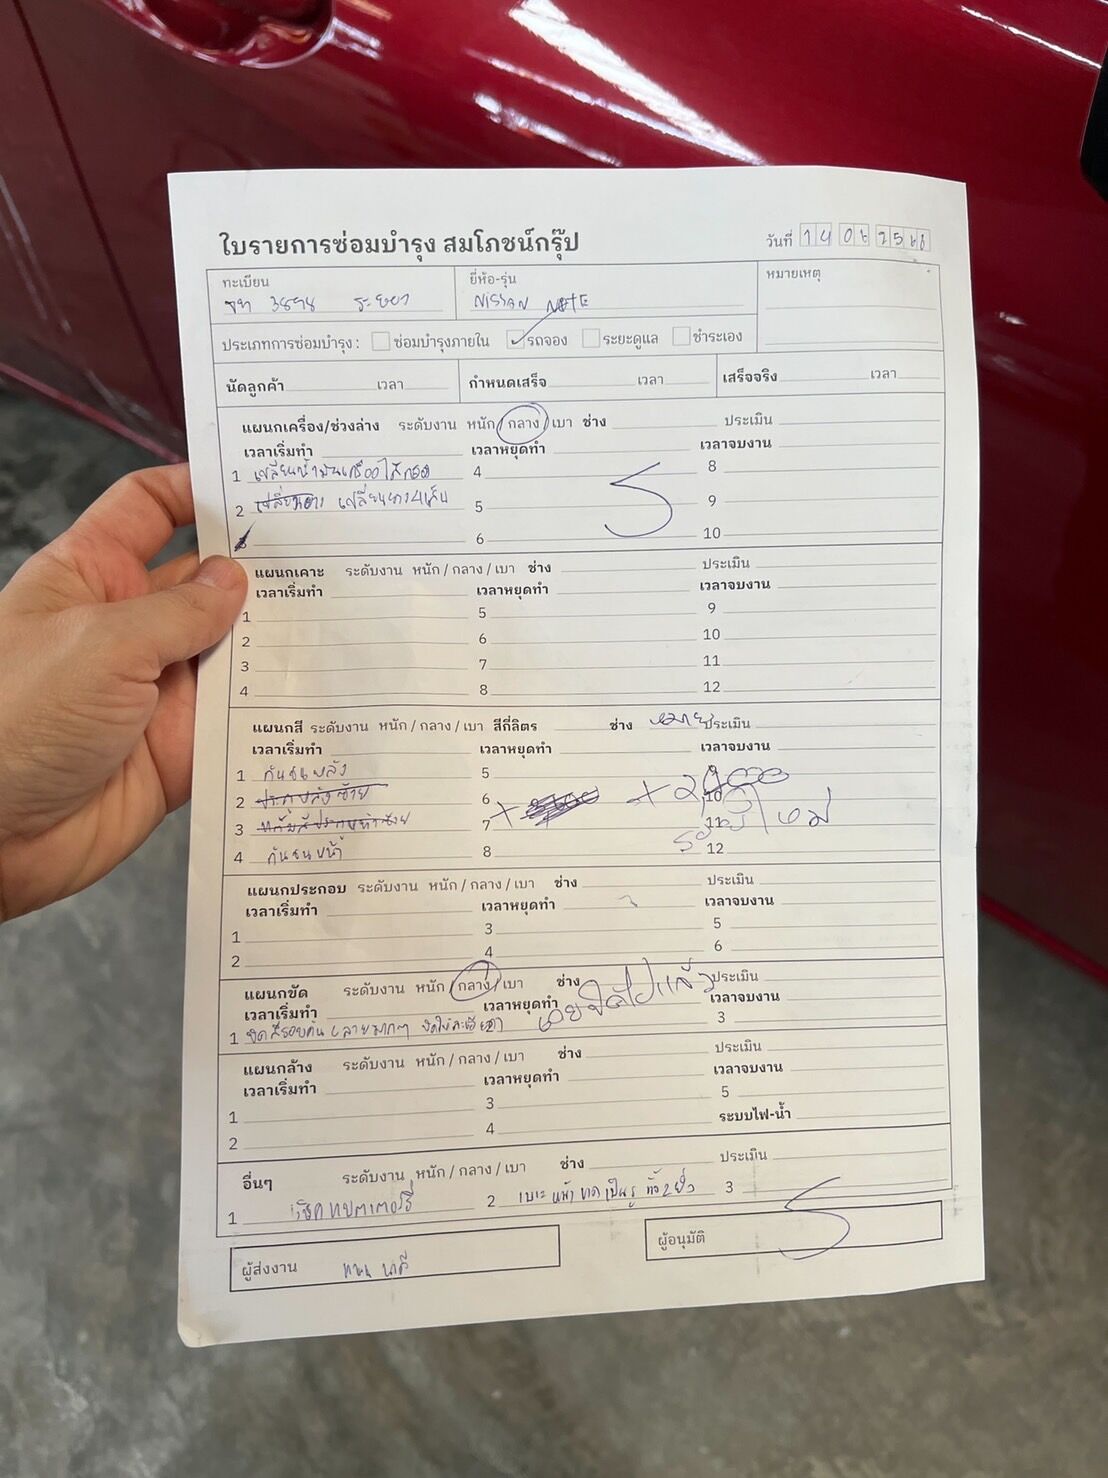 ใบรายการซ่อมบำรุง สมโภชน์กรุ๊ป
วันที่ 14 06 25
ทะเบียน ยี่ห้อ-รุ่น หมายเหตุ
3898 ระยอง NISSAN NOTE
ประเภทการซ่อมบำรุง : ซ่อมบำรุงภายใน รถจอง ระยะดูแล ชำระเอง
นัดลูกค้า เวลา กำหนดเสร็จ เวลา เสร็จจริง เวลา
แผนกเครื่อง/ช่วงล่าง ระดับงาน หนัก / กลาง / เบา ช่าง ประเมิน
เวลาเริ่มทำ เวลาหยุดทำ เวลาจบงาน
1 เปลี่ยนน้ำมันเครื่อง ไส้กรอง 4 8
2 เปลี่ยนยาง เปลี่ยนยาง 4 เส้น 5 9
3 6 10
แผนกเคาะ ระดับงาน หนัก / กลาง / เบา ช่าง ประเมิน
เวลาเริ่มทำ เวลาหยุดทำ เวลาจบงาน
1 5 9
2 6 10
3 7 11
4 8 12
แผนกสี ระดับงาน หนัก / กลาง / เบา สีกี่ลิตร ช่าง ประเมิน
เวลาเริ่มทำ เวลาหยุดทำ เวลาจบงาน
1 กันชนหลัง 5 9
2 ประตูหลังซ้าย 6 10
3 7 11
4 กันชนหน้า 8 12
แผนกประกอบ ระดับงาน หนัก / กลาง / เบา ช่าง ประเมิน
เวลาเริ่มทำ เวลาหยุดทำ เวลาจบงาน
1 3 5
2 4 6
แผนกขัด ระดับงาน หนัก / กลาง / เบา ช่าง ประเมิน
เวลาเริ่มทำ เวลาหยุดทำ เวลาจบงาน
1 ขัดสีรอบคัน (ลายมากๆ 3
เคยขัดไปแล้ว
แผนกล้าง ระดับงาน หนัก / กลาง / เบา ช่าง ประเมิน
เวลาเริ่มทำ เวลาหยุดทำ เวลาจบงาน
1 3 5
2 4 ระบบไฟ-น้ำ
อื่นๆ ระดับงาน หนัก / กลาง / เบา ช่าง ประเมิน
1 เช็คแบตเตอรี่ 2 เบาะหน้าขาดเป็นรู ทั้ง 2 ฝั่ง 3
ผู้ส่งงาน ผู้อนุมัติ